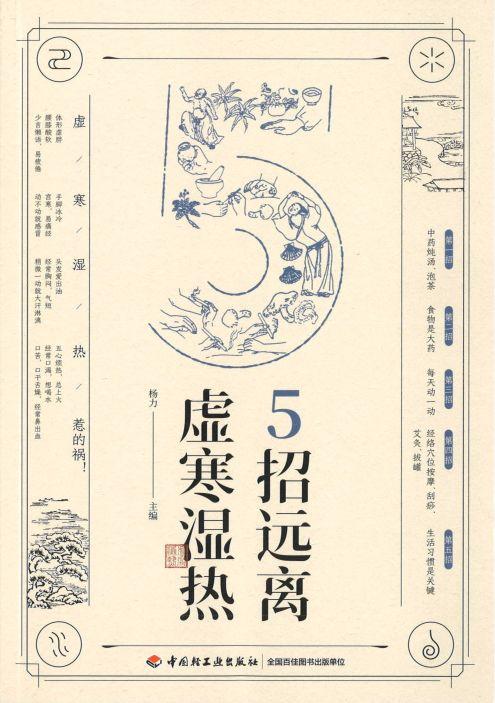 5招远离
虚寒湿热
杨力——主编
第一招
中药炖汤、泡茶
第二招
食物是大药
第三招
每天动一动
第四招
经络穴位按摩、刮痧、
艾灸、拔罐
第五招
生活习惯是关键
虚/寒/湿/热/惹的祸!
体形虚胖
腰膝酸软
少言懒语、易疲倦
手脚冰冷
宫寒、易痛经
动不动就感冒
头发爱出油
经常胸闷、气短
稍微一动就大汗淋漓
五心烦热、总上火
经常口渴、想喝水
口苦、口干舌燥、经常鼻出血
中国轻工业出版社
全国百佳图书出版单位